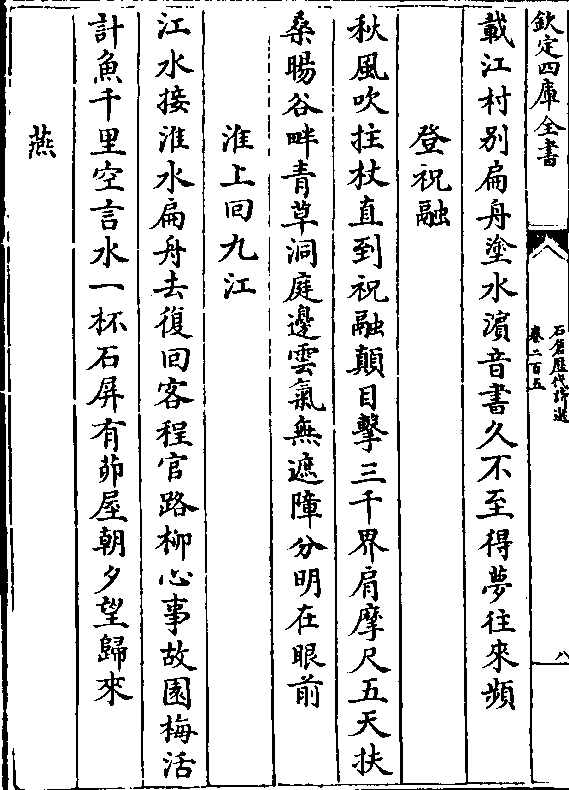 欽定四庫全書
石倉歷代詩選
卷二百五
八
載江村别扁舟塗水濵音書久不至得夢往來頻
登祝融
秋風吹拄杖直到祝融顛目擊三千界肩摩尺五天扶
桑暘谷畔青草洞庭邊雲氣無遮障分明在眼前
淮上回九江
江水接淮水扁舟去復回客程官路柳心事故園梅活
計魚千里空言水一杯石屏有茆屋朝夕望歸來
燕